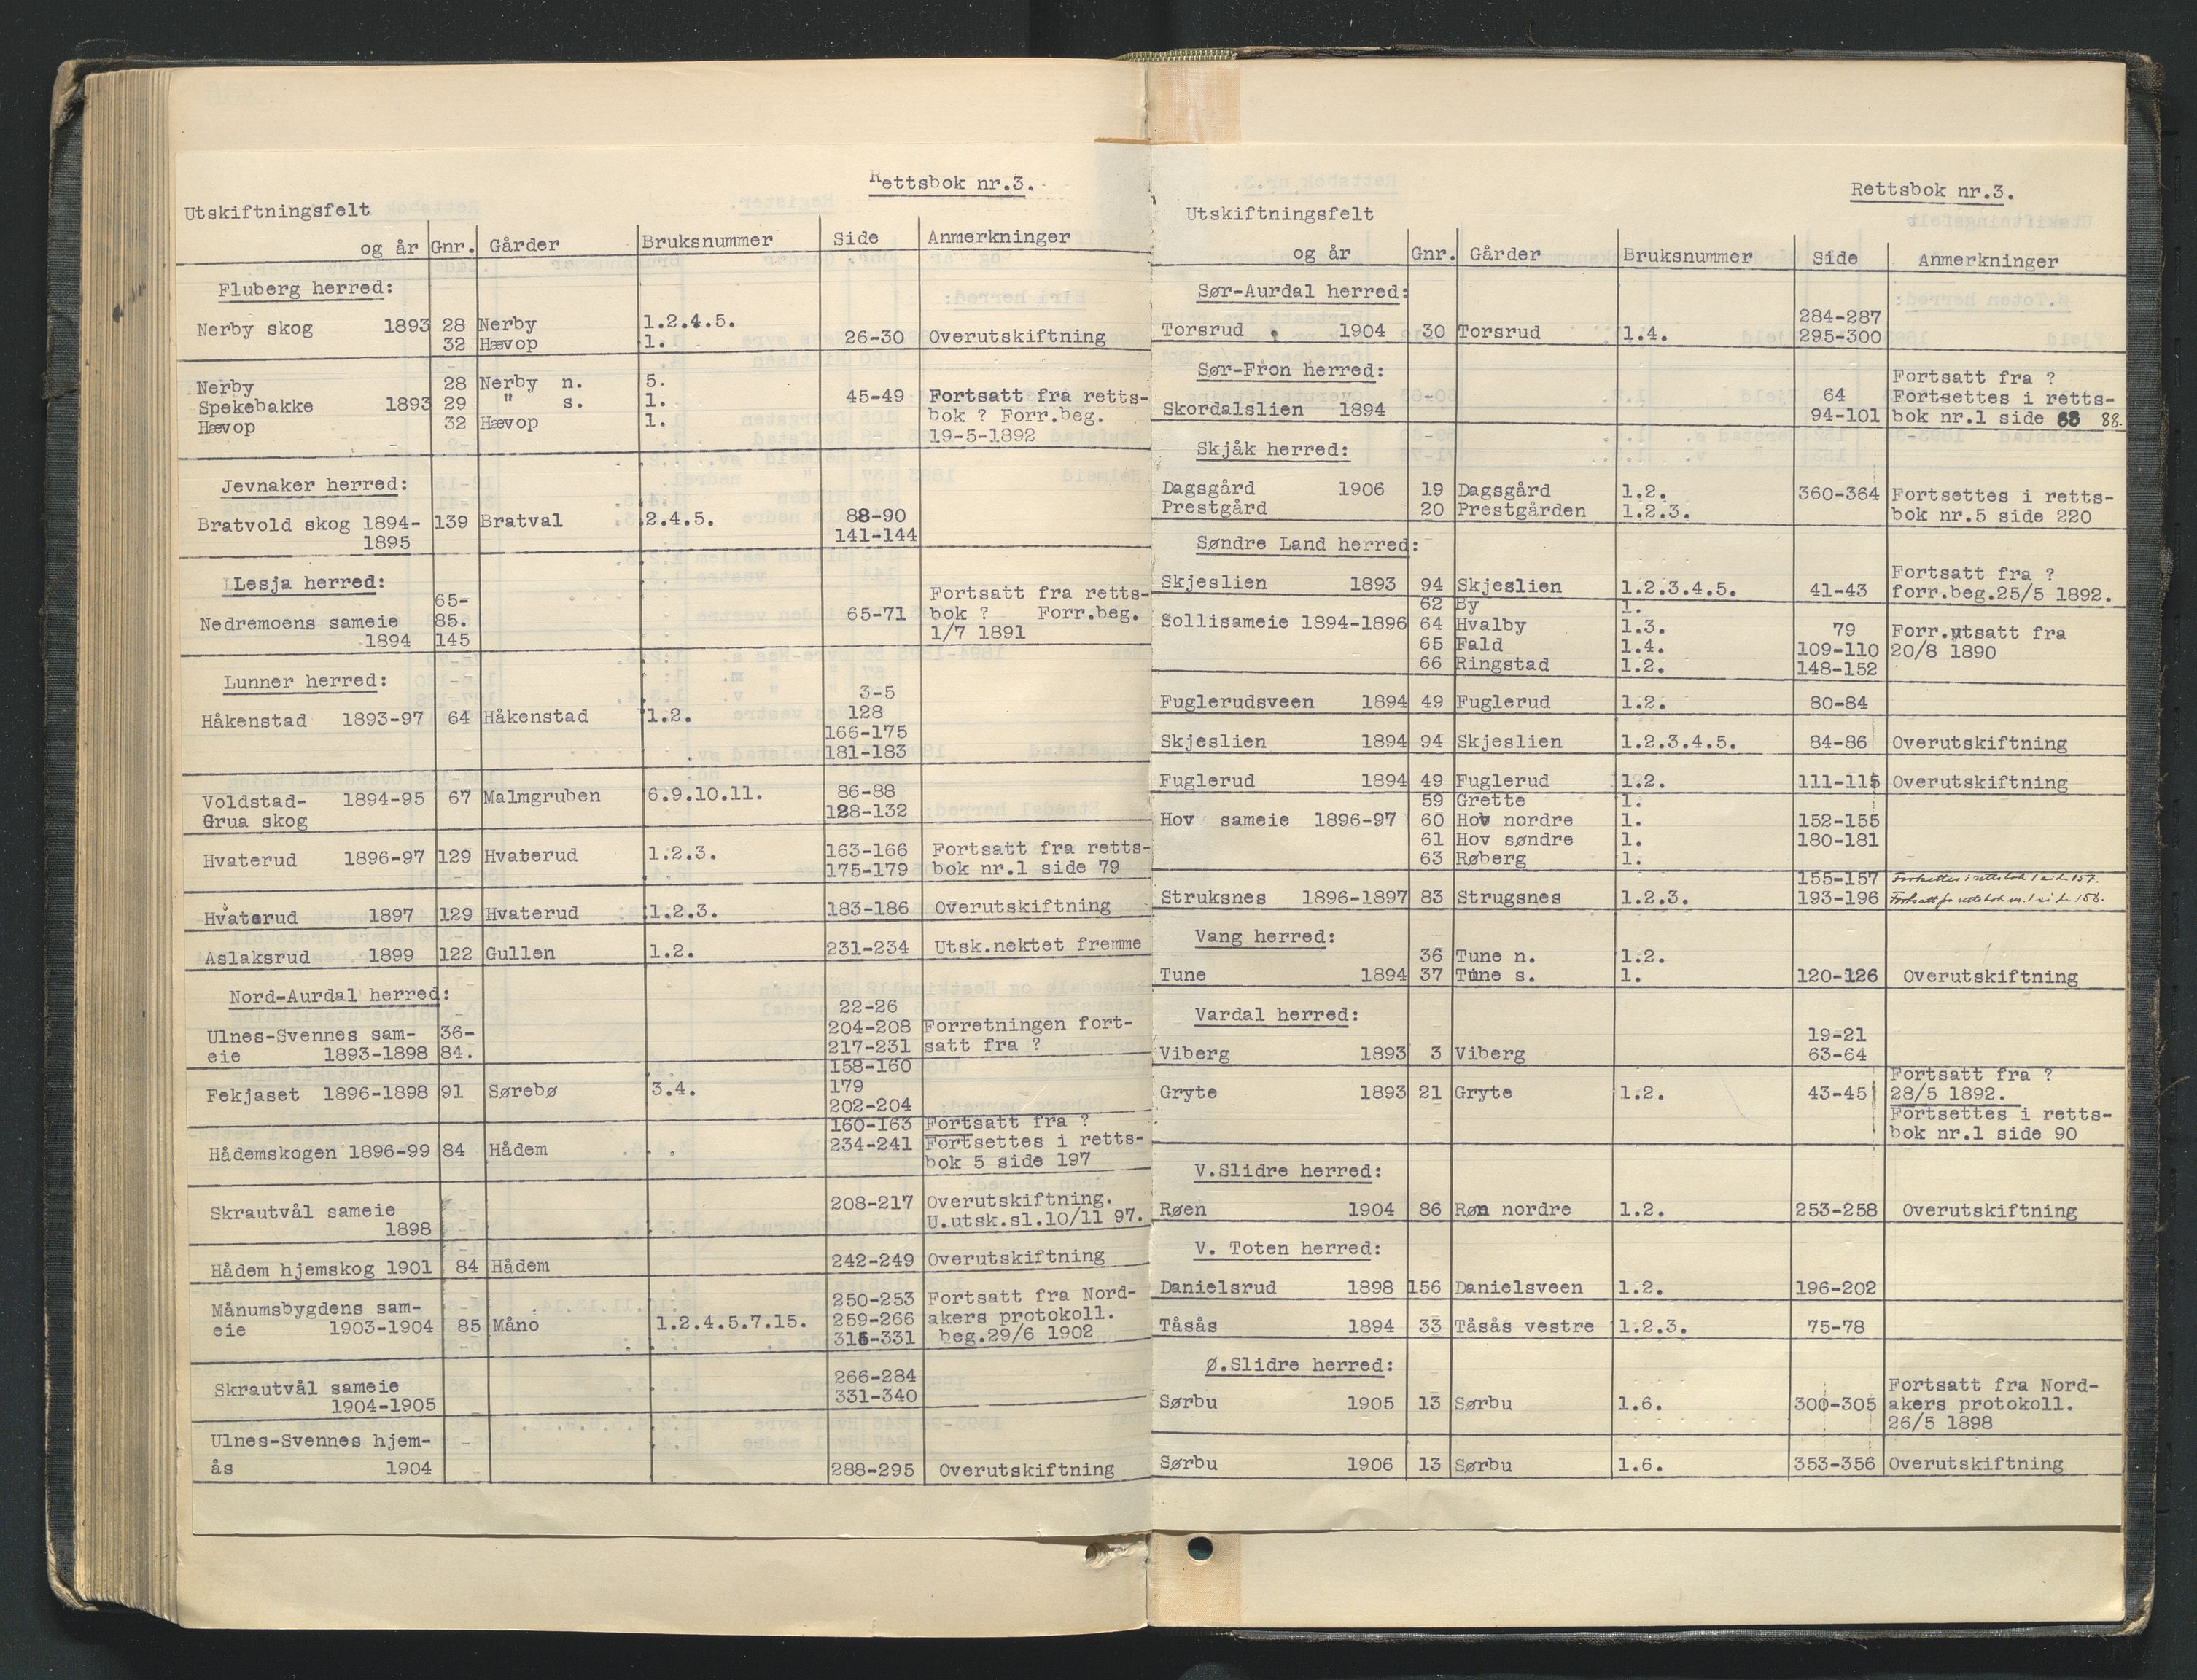 Rettsbok nr.3.
Utskiftningsfelt
og år Gnr. Gårder Bruksnummer Side Anmerkninger
Fluberg herred:
Nerby skog 1893 28 Nerby 1.2.4.5.
32 Hævop 1. 26-30 Overutskiftning
Nerby 28 Nerby n. 5.
Spekebakke 1893 29 " s. 1. 45-49 Fortsatt fra retts-
Hævop 32 Hævop 1. bok ? Forr.beg.
19-5-1892
Jevnaker herred:
Bratvold skog 1894- 139 Bratval 2.4.5. 88-90
1895 141-144
Lesja herred:
65- Fortsatt fra retts-
Nedremoens sameie 85. 65-71 bok ? Forr.beg.
1894 145 1/7 1891
Lunner herred:
3-5
Håkenstad 1893-97 64 Håkenstad 1.2. 128
166-175
181-183
Voldstad- 1894-95 67 Malmgruben 6.9.10.11. 86-88
Grua skog 128-132
Hvaterud 1896-97 129 Hvaterud 1.2.3. 163-166 Fortsatt fra retts-
175-179 bok nr.1 side 79
Hvaterud 1897 129 Hvaterud 1.2.3. 183-186 Overutskiftning
Aslaksrud 1899 122 Gullen 1.2. 231-234 Utsk.nektet fremme
Nord-Aurdal herred:
22-26
Ulnes-Svennes sam- 36- 204-208 Forretningen fort-
eie 1893-1898 84. 217-231 satt fra ?
158-160
Fekjaset 1896-1898 91 Sørebø 3.4. 179
202-204
160-163 Fortsatt fra ?
Hådemskogen 1896-99 84 Hådem 234-241 Fortsettes i retts-
bok 5 side 197
Skrautvål sameie 208-217 Overutskiftning.
1898 U.utsk.sl.10/11 97.
Hådem hjemskog 1901 84 Hådem 242-249 Overutskiftning
Månumsbygdens sam- 250-253 Fortsatt fra Nord-
eie 1903-1904 85 Måno 1.2.4.5.7.15. 259-266 akers protokoll.
315-331 beg.29/6 1902
Skrautvål sameie 266-284
1904-1905 331-340
Ulnes-Svennes hjem-
ås 1904 288-295 Overutskiftning
Rettsbok nr.3.
Utskiftningsfelt
og år Gnr. Gårder Bruksnummer Side Anmerkninger
Sør-Aurdal herred:
284-287
Torsrud 1904 30 Torsrud 1.4. 295-300
Sør-Fron herred:
Fortsatt fra ?
64 Fortsettes i retts-
Skordalslien 1894 94-101 bok nr.1 side 88.
Skjåk herred:
Dagsgård 1906 19 Dagsgård 1.2. 360-364 Fortsettes i retts-
Prestgård 20 Prestgården 1.2.3. bok nr.5 side 220
Søndre Land herred:
Fortsatt fra ?
Skjeslien 1893 94 Skjeslien 1.2.3.4.5. 41-43 forr.beg.25/5 1892.
62 By 1.
Sollisameie 1894-1896 64 Hvalby 1.3. 79 Forr.utsatt fra
65 Fald 1.4. 109-110 20/8 1890
66 Ringstad 1.2. 148-152
Fuglerudsveen 1894 49 Fuglerud 1.2. 80-84
Skjeslien 1894 94 Skjeslien 1.2.3.4.5. 84-86 Overutskiftning
Fuglerud 1894 49 Fuglerud 1.2. 111-115 Overutskiftning
59 Grette 1.
Hov sameie 1896-97 60 Hov nordre 1. 152-155
61 Hov søndre 1. 180-181
63 Røberg 1.
155-157 Fortsettes i rettsbok 1 side 157.
Struksnes 1896-1897 83 Strugsnes 1.2.3. 193-196 Fortsatt fra rettsbok nr.1 side 158.
Vang herred:
36 Tune n. 1.2.
Tune 1894 37 Tune s. 1. 120-126 Overutskiftning
Vardal herred:
19-21
Viberg 1893 3 Viberg 63-64
Fortsatt fra ?
Gryte 1893 21 Gryte 1.2. 43-45 28/5 1892.
Fortsettes i retts-
bok nr.1 side 90
V.Slidre herred:
Røen 1904 86 Røn nordre 1.2. 253-258 Overutskiftning
V. Toten herred:
Danielsrud 1898 156 Danielsveen 1.2. 196-202
Tåsås 1894 33 Tåsås vestre 1.2.3. 75-78
Ø.Slidre herred:
Fortsatt fra Nord-
Sørbu 1905 13 Sørbu 1.6. 300-305 akers protokoll.
26/5 1898
Sørbu 1906 13 Sørbu 1.6. 353-356 Overutskiftning